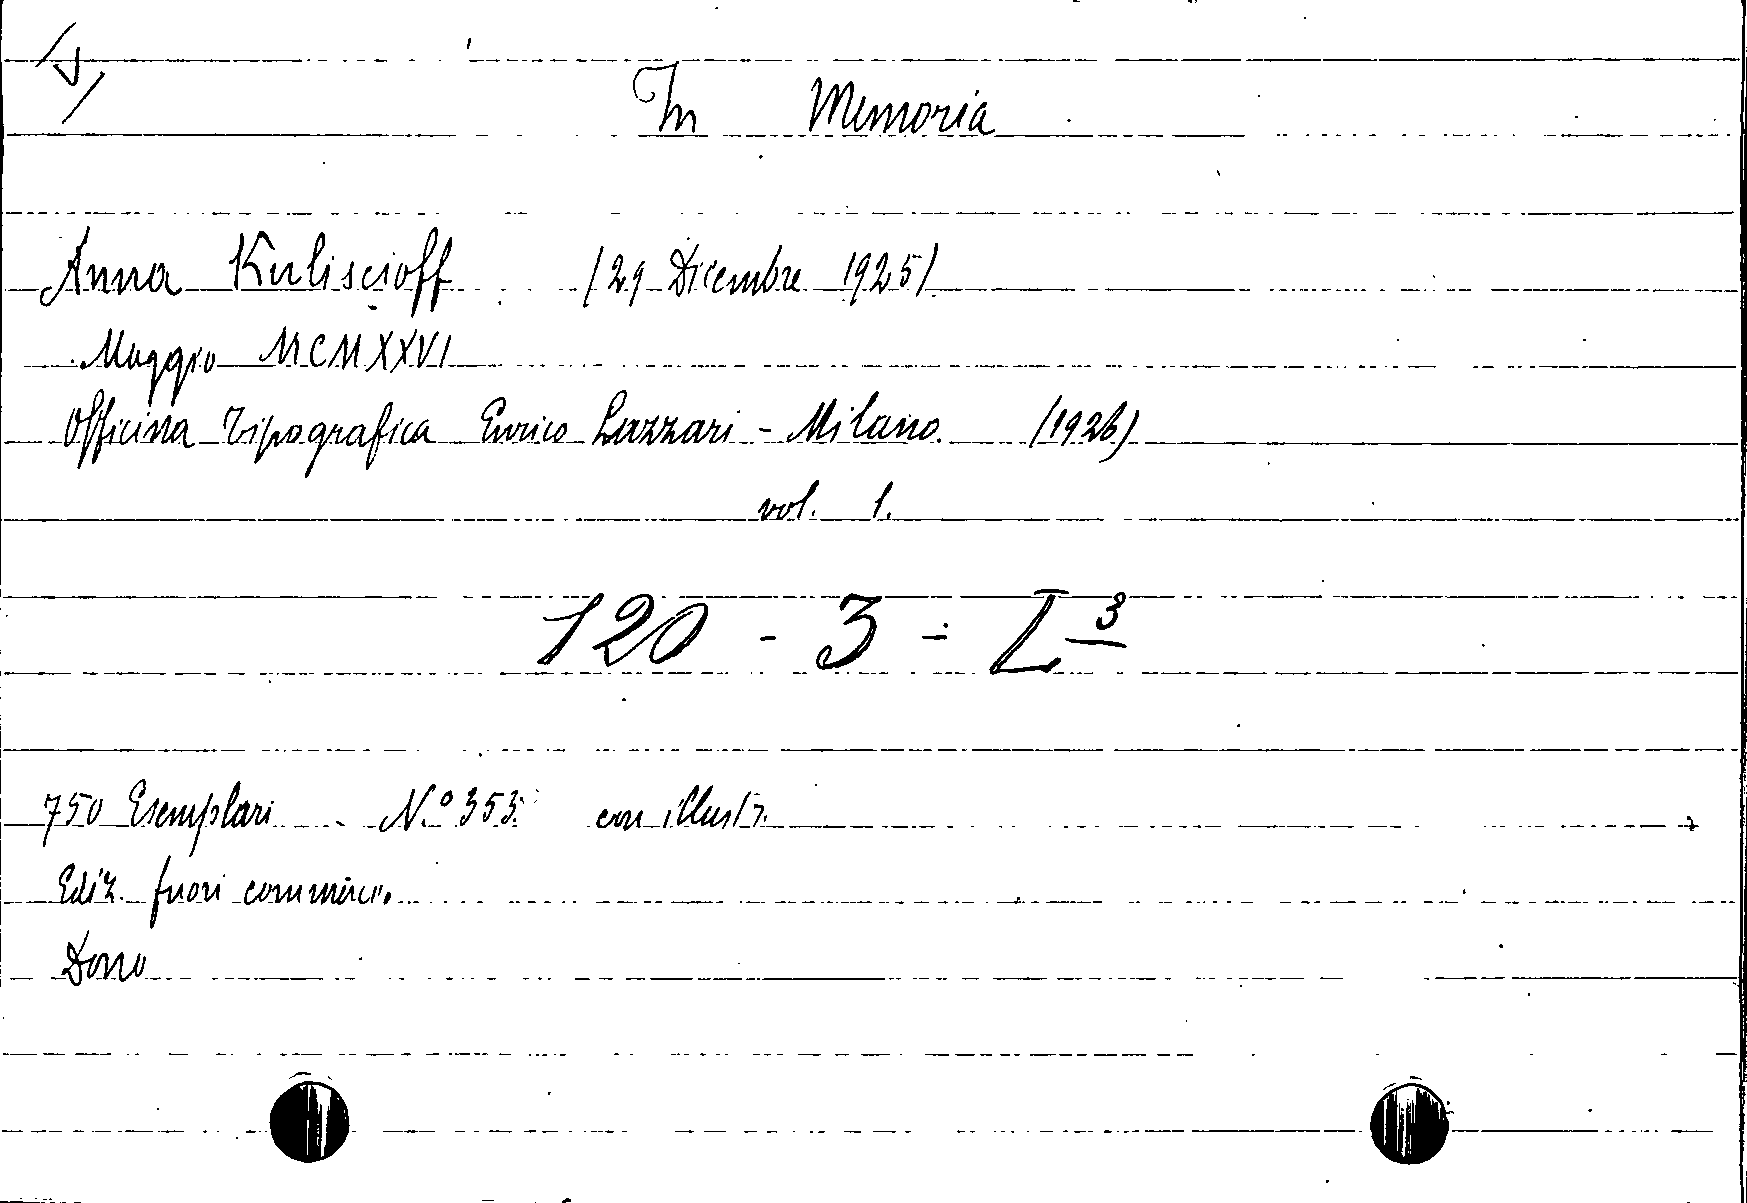 In Memoria
Anna Kuliscioff (29 Dicembre 1925)
Maggio MCMXXVI
Officina Tipografica Enrico Lazzari - Milano (1926)
vol. 1.
120 - 3 = L 3
750 Esemplari N.º 353 con illustr.
Ediz. fuori commerci.
Dono